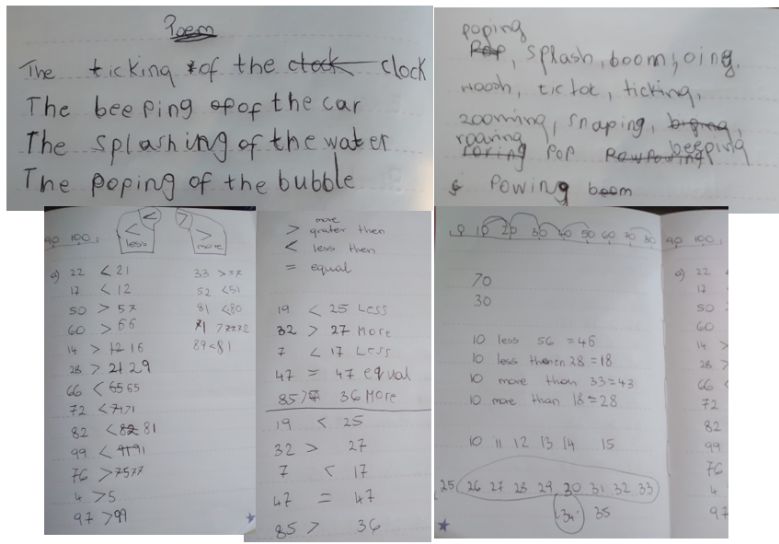 Poem
The ticking of the clock clock
The beeping of of the car
The splashing of the water
The poping of the bubble
poping
Pop, splash, boom, oing,
woosh, tic toc, ticking,
zooming, snaping,
roaring
roring POP beeping
Powing boom
90 100
< >
< less
> more
a) 22 < 21
17 < 12
50 > 57
60 > 66
14 > 12 16
28 > 21 29
66 < 65 65
72 < 71 71
82 < 82 81
99 < 91 91
76 > 75 77
4 > 5
97 > 99
33 >
52 < 51
81 < 80
71 > 72
89 < 81
more
> grater then
< less then
= equal
19 < 25 Less
32 > 27 More
7 < 17 Less
47 = 47 equal
85 > 36 More
19 < 25
32 > 27
7 < 17
47 = 47
85 > 36
0 10 20 30 40 50 60 70 80 90 100
70
30
10 less 56 = 46
10 less then 28 = 18
10 more than 33 = 43
10 more than 18 = 28
10 11 12 13 14 15
25 26 27 28 29 30 31 32 33
34 35
a) 22
17
50
60
14 >
28 >
66
72
82
99
76
4
97